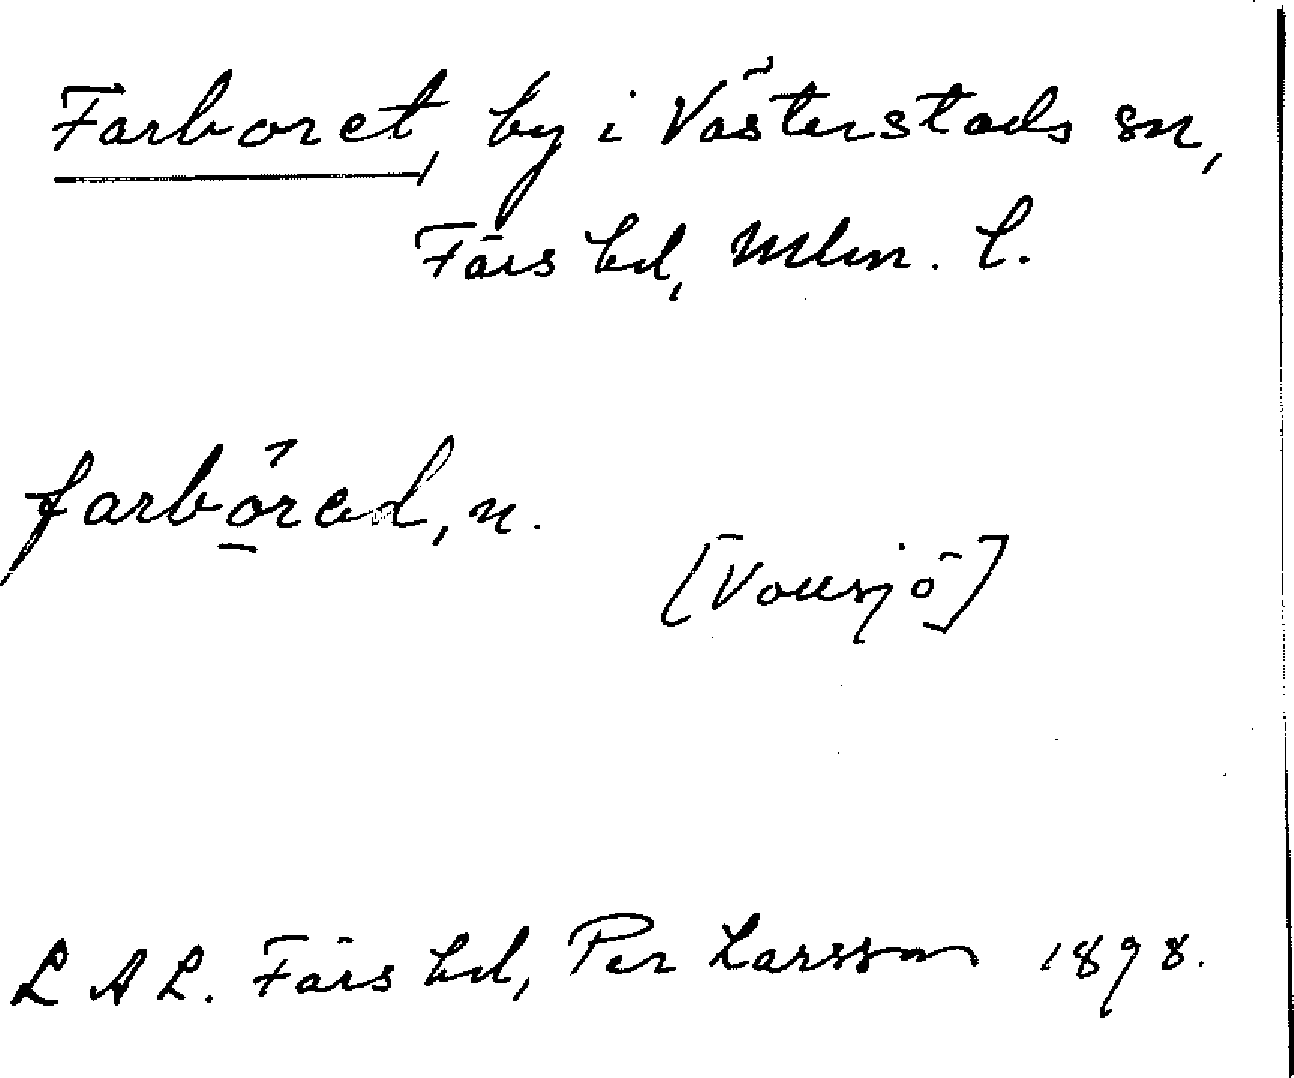 Farboret, by i Västerstads sn,
Färs hd, Mlm. l.
farböred, n.
[Vollsjö]
L A L. Färs hd, Per Larsson 1898.